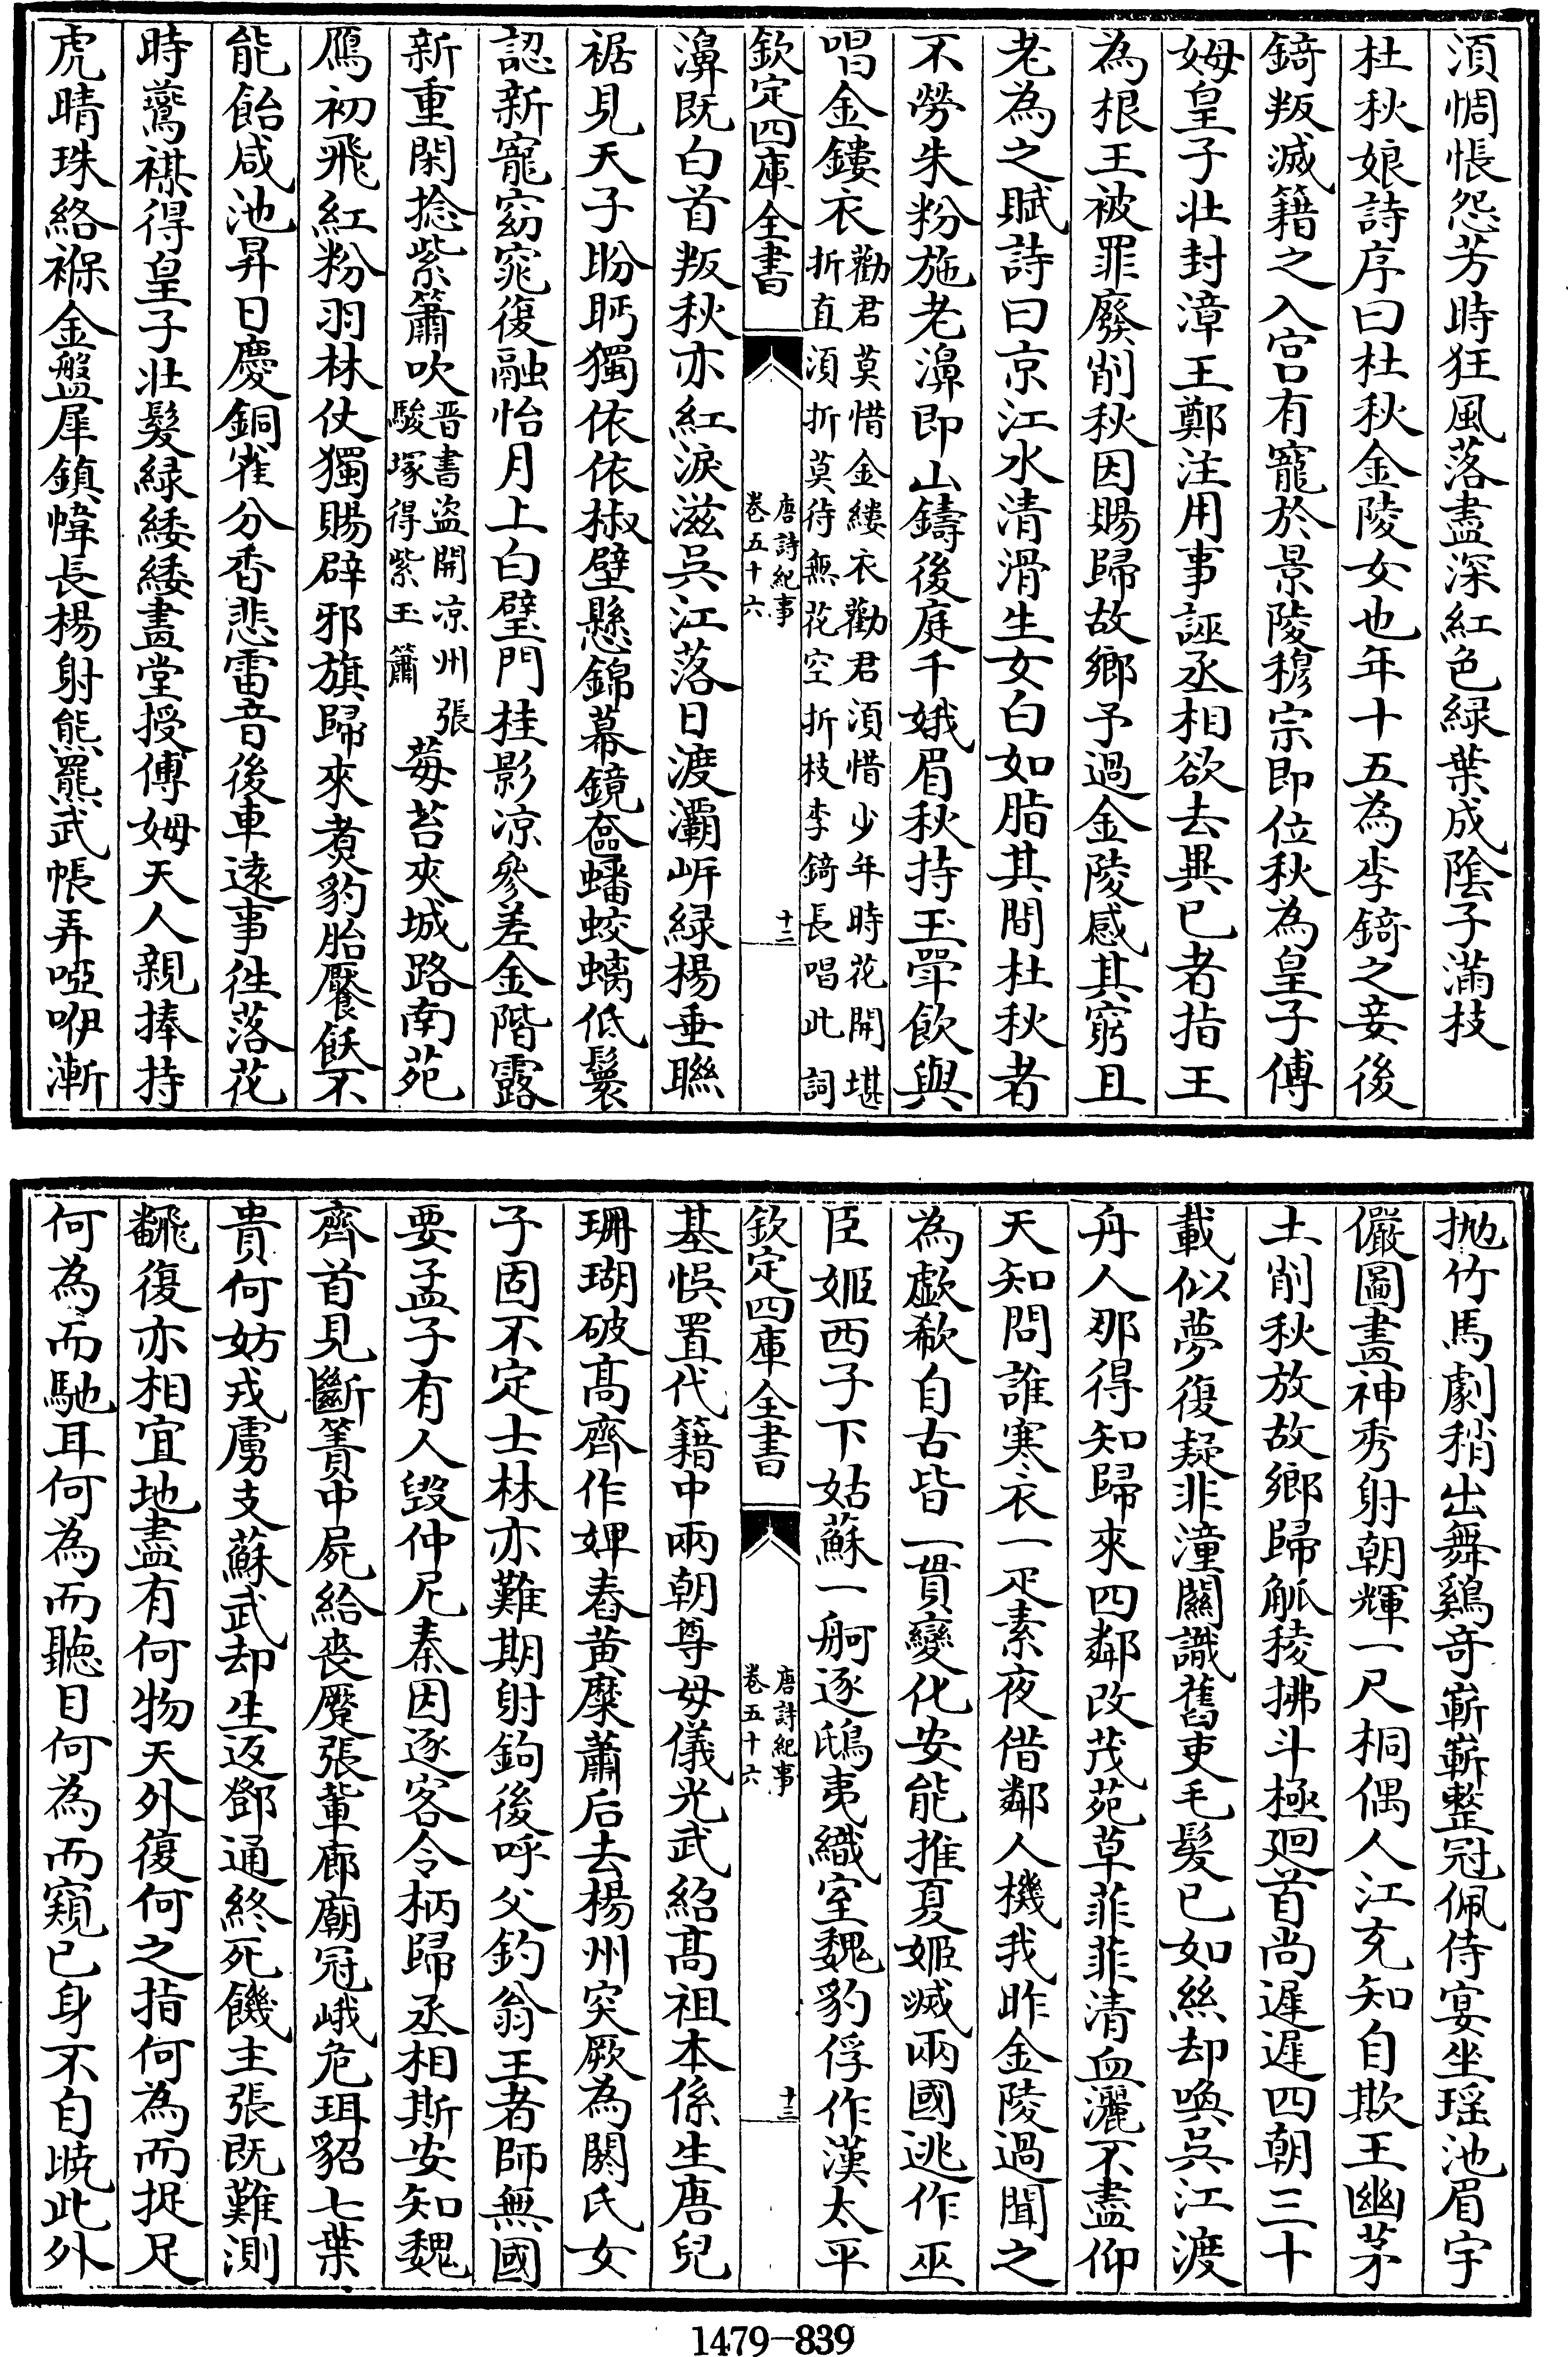 須惆悵怨芳時狂風落盡深紅色緑葉成隂子滿枝
杜秋娘詩序曰杜秋金陵女也年十五為李錡之妾後
錡叛滅籍之入宫有寵於景陵穆宗即位秋為皇子傅
姆皇子壯封漳王鄭注用事誣丞相欲去異已者指王
為根王被罪廢削秋因賜歸故鄉予過金陵感其窮且
老為之賦詩曰京江水清滑生女白如脂其間杜秋者
不勞朱粉施老濞即山鑄後庭千娥眉秋持玉斝飲與
唱金鏤衣
勸君莫惜金縷衣勸君須惜少年時花開堪
折直須折莫待無花空折枝李錡長唱此詞
欽定四庫全書
唐詩紀事
卷五十六
十二
濞既白首叛秋亦紅淚滋吳江落日渡灞岍緑楊垂聯
裾見天子盼眄獨依依椒壁懸錦幕鏡奩蟠蛟螭低鬟
認新寵窈窕復融怡月上白璧門桂影凉參差金階露
新重閑捻紫簫吹
晋書盗開凉州張
駿塚得紫玉簫
莓苔夾城路南苑
鴈初飛紅粉羽林仗獨賜辟邪旗歸來煮豹胎饜飫不
能飴咸池昇日慶銅雀分香悲雷音後車遠事徃落花
時鷰禖得皇子壯髮緑緌緌畫堂授傅姆天人親捧持
虎睛珠絡褓金盤犀鎮帷長楊射熊羆武帳弄啞咿漸
抛竹馬劇稍出舞鷄奇嶄嶄整冠佩侍宴坐瑶池眉宇
儼圖畫神秀射朝輝一尺桐偶人江充知自欺王幽茅
土削秋放故鄉歸觚稜拂斗極廻首尚遲遲四朝三十
載似夢復疑非潼關識舊吏毛髮已如絲却喚吳江渡
舟人那得知歸來四鄰改茂苑草菲菲清血灑不盡仰
天知問誰寒衣一疋素夜借鄰人機我昨金陵過聞之
為歔欷自古皆一貫變化安能推夏姬滅兩國逃作巫
臣姬西子下姑蘇一舸逐鴟夷織室魏豹俘作漢太平
欽定四庫全書
唐詩紀事
卷五十六
十三
基悞置代籍中兩朝尊母儀光武紹髙祖本係生唐兒
珊瑚破髙齊作婢舂黄糜蕭后去楊州突厥為閼氏女
子固不定士林亦難期射鉤後呼父釣翁王者師無國
要孟子有人毀仲尼秦因逐客令柄歸丞相斯安知魏
齊首見斷簀中屍給喪蹷張輩廊廟冠峨危珥貂七葉
貴何妨戎虜支蘇武却生返鄧通終死饑主張既難測
飜復亦相宜地盡有何物天外復何之指何為而捉足
何為而馳耳何為而聽目何為而窺已身不自曉此外
1479-839